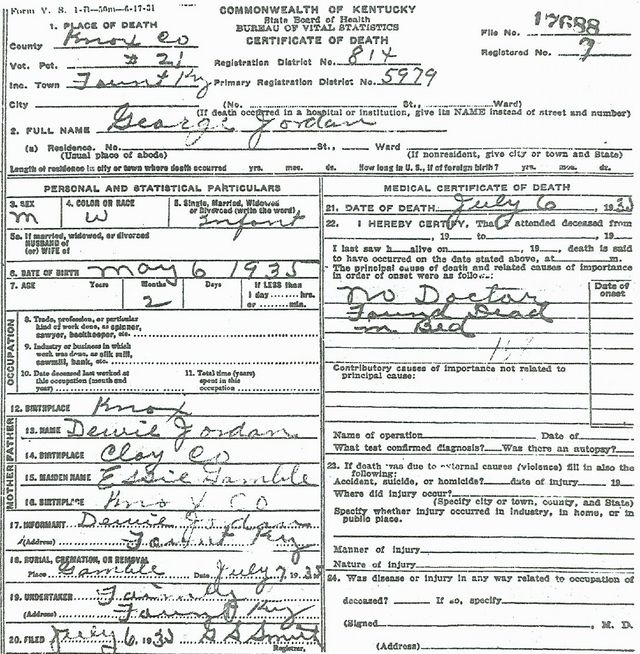 Form V. S. 1-B-50m-6-17-31
COMMONWEALTH OF KENTUCKY
State Board of Health
BUREAU OF VITAL STATISTICS
CERTIFICATE OF DEATH
File No. 17688
Registered No. 7
1. PLACE OF DEATH
County Knox Co
Vot. Pct. # 21
Registration District No. 814
Inc. Town Fount Ky
Primary Registration District No. 5979
City (No. St., Ward)
(If death occurred in a hospital or institution, give its NAME instead of street and number)
2. FULL NAME George Jordan
(a) Residence. No. St., Ward
(Usual place of abode) (If nonresident, give city or town and State)
Length of residence in city or town where death occurred yrs. mos. ds. How long in U. S., if of foreign birth? yrs. mos. ds.
PERSONAL AND STATISTICAL PARTICULARS
3. SEX M
4. COLOR OR RACE W
5. Single, Married, Widowed or Divorced (write the word) Infant
5a. If married, widowed, or divorced
HUSBAND of
(or) WIFE of
6. DATE OF BIRTH May 6 1935
7. AGE Years Months Days If LESS than
2 1 day hrs.
or min.
OCCUPATION
8. Trade, profession, or particular
kind of work done, as spinner,
sawyer, bookkeeper, etc.
9. Industry or business in which
work was done, as silk mill,
sawmill, bank, etc.
10. Date deceased last worked at
this occupation (month and
year)
11. Total time (years)
spent in this
occupation
12. BIRTHPLACE Knox
FATHER
13. NAME Dewie Jordan
14. BIRTHPLACE Clay Co
MOTHER
15. MAIDEN NAME Essie Gamble
16. BIRTHPLACE Knox Co
17. INFORMANT Dewie Jordan
(Address) Fount Ky
18. BURIAL, CREMATION, OR REMOVAL
Place Gamble Date July 7, 1935
19. UNDERTAKER Family
(Address) Fount Ky
20. FILED July 6, 1935 G S Smith
Registrar.
MEDICAL CERTIFICATE OF DEATH
21. DATE OF DEATH July 6, 1935
22. I HEREBY CERTIFY, That I attended deceased from
, 19 to , 19
I last saw h alive on , 19 , death is said
to have occurred on the date stated above, at m.
The principal cause of death and related causes of importance
in order of onset were as follows:
Date of
onset
No Doctor
Found Dead
in Bed
Contributory causes of importance not related to
principal cause:
Name of operation Date of
What test confirmed diagnosis? Was there an autopsy?
23. If death was due to external causes (violence) fill in also the
following:
Accident, suicide, or homicide? date of injury 19
Where did injury occur?
(Specify city or town, county, and State)
Specify whether injury occurred in industry, in home, or in
public place.
Manner of injury
Nature of injury
24. Was disease or injury in any way related to occupation of
deceased? If so, specify
(Signed , M. D.
(Address)